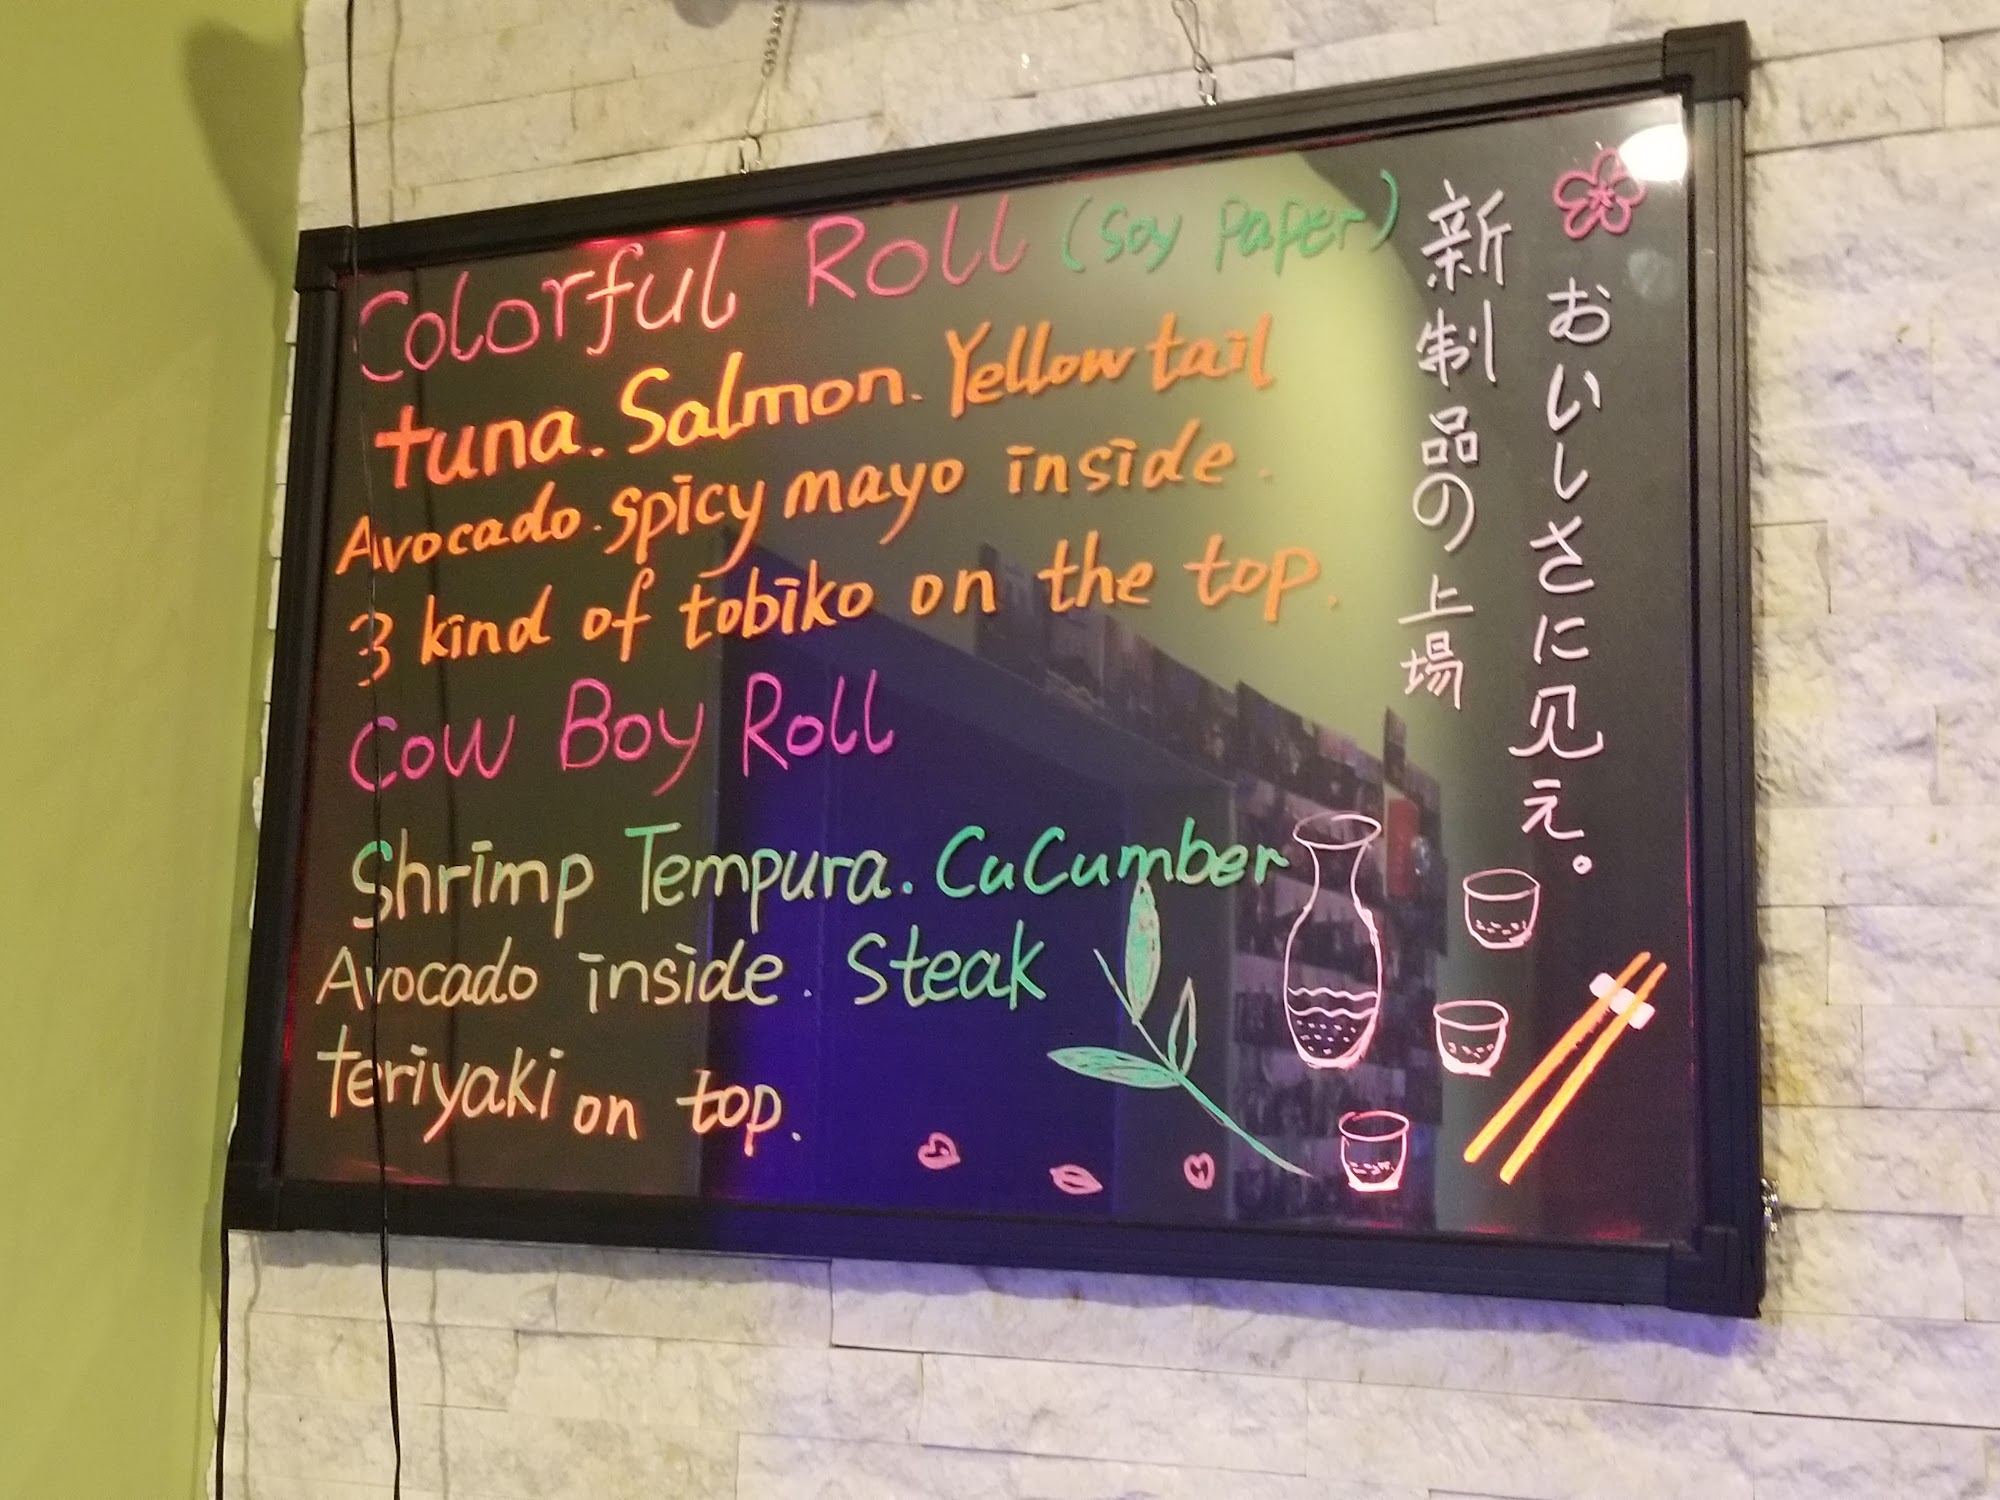 Colorful Roll (Soy Paper)
tuna. Salmon. Yellowtail
Avocado. spicy mayo inside.
3 kind of tobiko on the top.
Cow Boy Roll
Shrimp Tempura. CuCumber
Avocado inside. Steak
teriyaki on top.
おいしさに见え。
新制品の上場